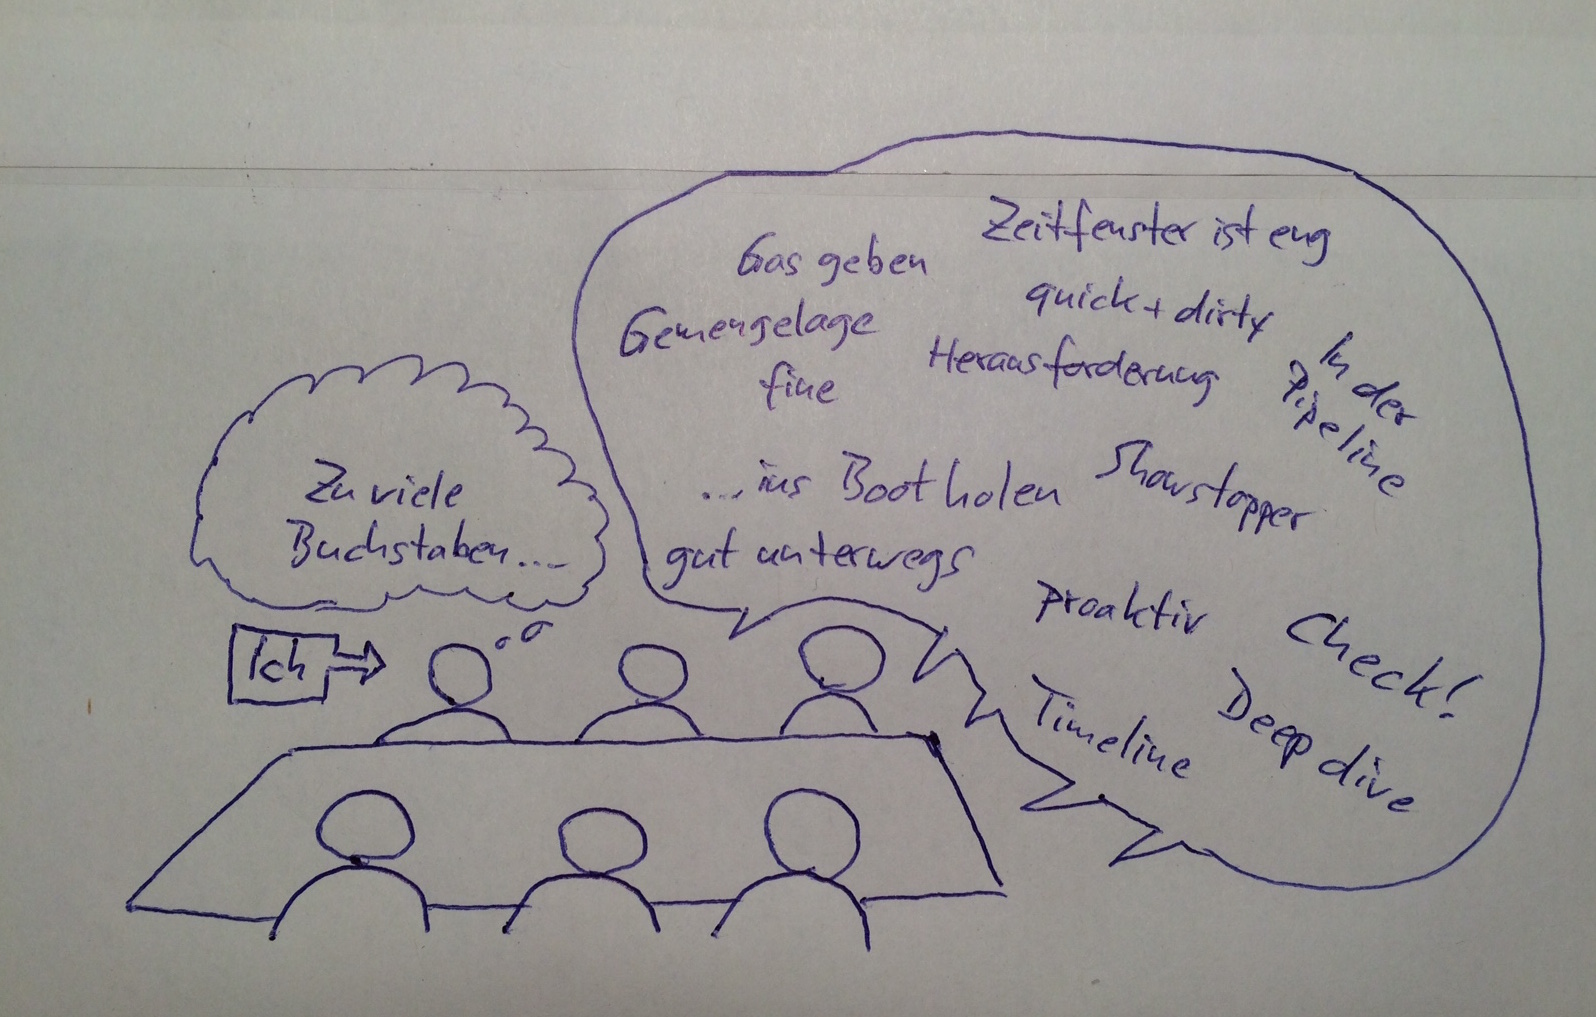 Zeitfenster ist eng
Gas geben
quick + dirty
Gemengelage
Herausforderung
In der
Pipeline
fine
... ins Boot holen
Showstopper
gut unterwegs
Proaktiv
Check!
Timeline
Deep dive
Zu viele
Buchstaben....
Ich